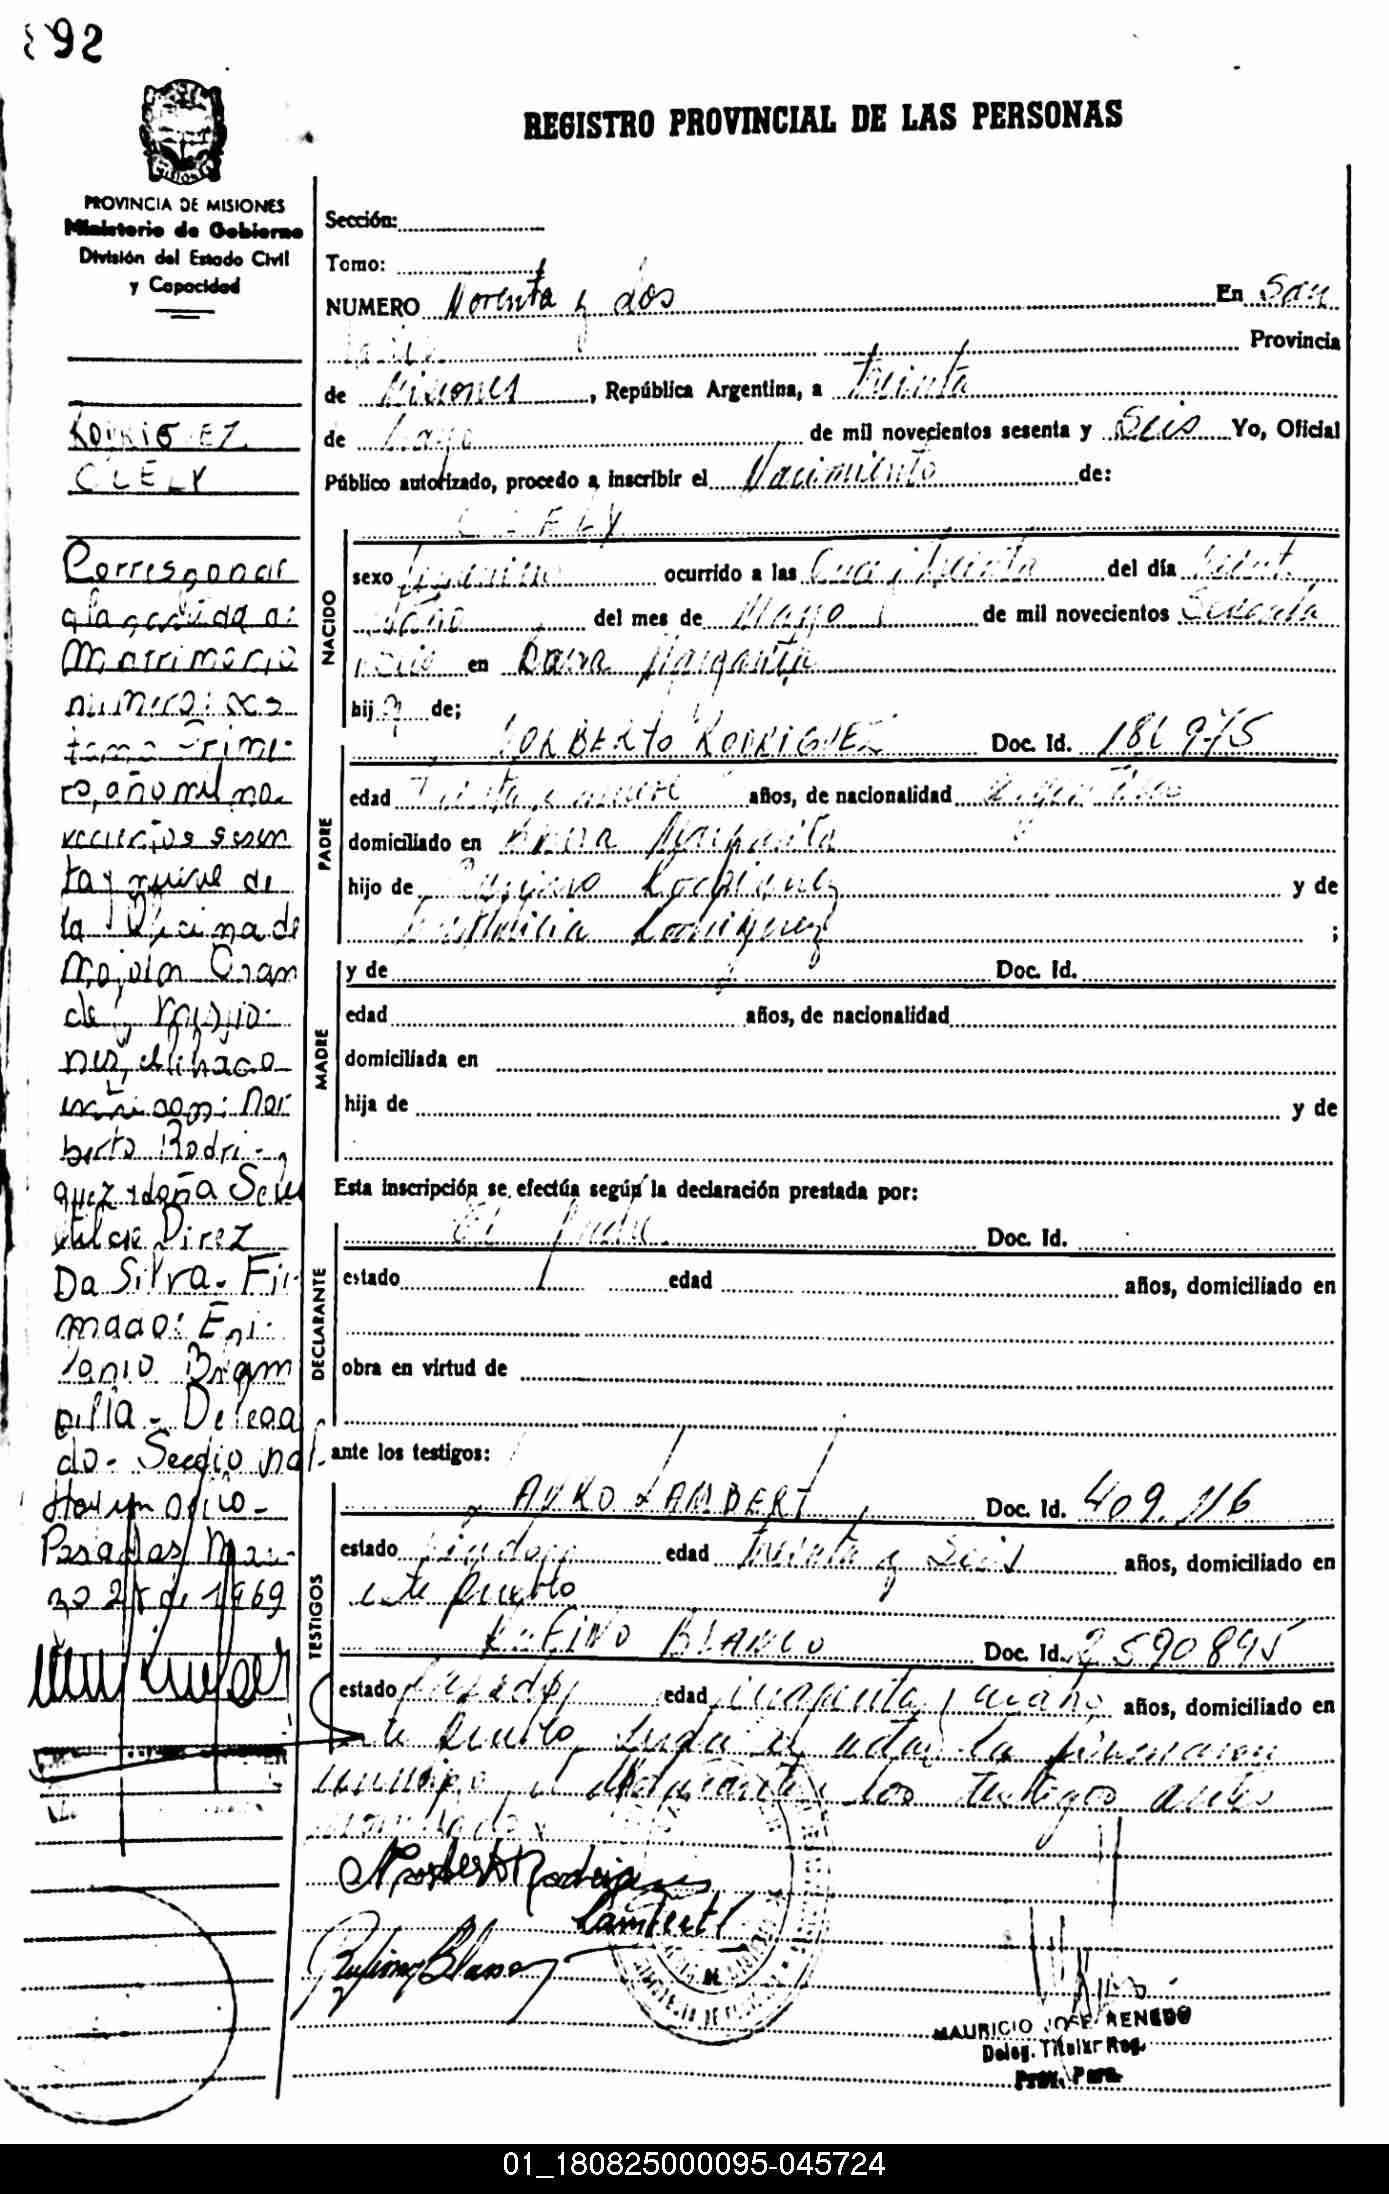 92
REGISTRO PROVINCIAL DE LAS PERSONAS
PROVINCIA DE MISIONES
Ministerio de Gobierno
División del Estado Civil
y Capacidad
RODRIGUEZ
CLELY
Corresponde
a la partida de
Matrimonio
numero: dos
tomo Prime-
ro, año mil no-
vecientos sesen
ta y nueve de
la Oficina de
Mojon Gran
de, Misio-
nes,
Nor
berto Rodri-
guez y doña
Pirez
Da Silva - Fir
mado:
Delega
do -
Posadas Mar-
zo 2 de 1969
Sección:
Tomo:
NUMERO Noventa y dos En San
Javier Provincia
de Misiones, República Argentina, a treinta
de Mayo de mil novecientos sesenta y Seis Yo, Oficial
Público autorizado, procedo a inscribir el Nacimiento de:
CLELY
NACIDO
sexo femenino ocurrido a las Once y treinta del día veinti
ocho del mes de Mayo de mil novecientos Sesenta
y seis en Barra Margarita
hij a de;
PADRE
NORBERTO RODRIGUEZ Doc. Id.
edad años, de nacionalidad argentino
domiciliado en Barra Margarita
hijo de Rodriguez y de
Rodriguez ;
MADRE
y de Doc. Id.
edad años, de nacionalidad
domiciliada en
hija de y de
Esta inscripción se efectúa según la declaración prestada por:
DECLARANTE
El padre Doc. Id.
estado edad años, domiciliado en
obra en virtud de
ante los testigos:
TESTIGOS
LAMBERT Doc. Id. 409.116
estado edad treinta y Seis años, domiciliado en
este pueblo
RUFINO BLANCO Doc. Id. 2590895
estado casado edad cincuenta y años, domiciliado en
este pueblo, leida el acta, la firmaron
conmigo, el declarante y los testigos antes
nombrados
Norberto Rodriguez
Lambert
Rufino Blanco
MAURICIO JOSE RENEDO
Deleg. Titular Reg.
Prov. Pers.
01_180825000095-045724